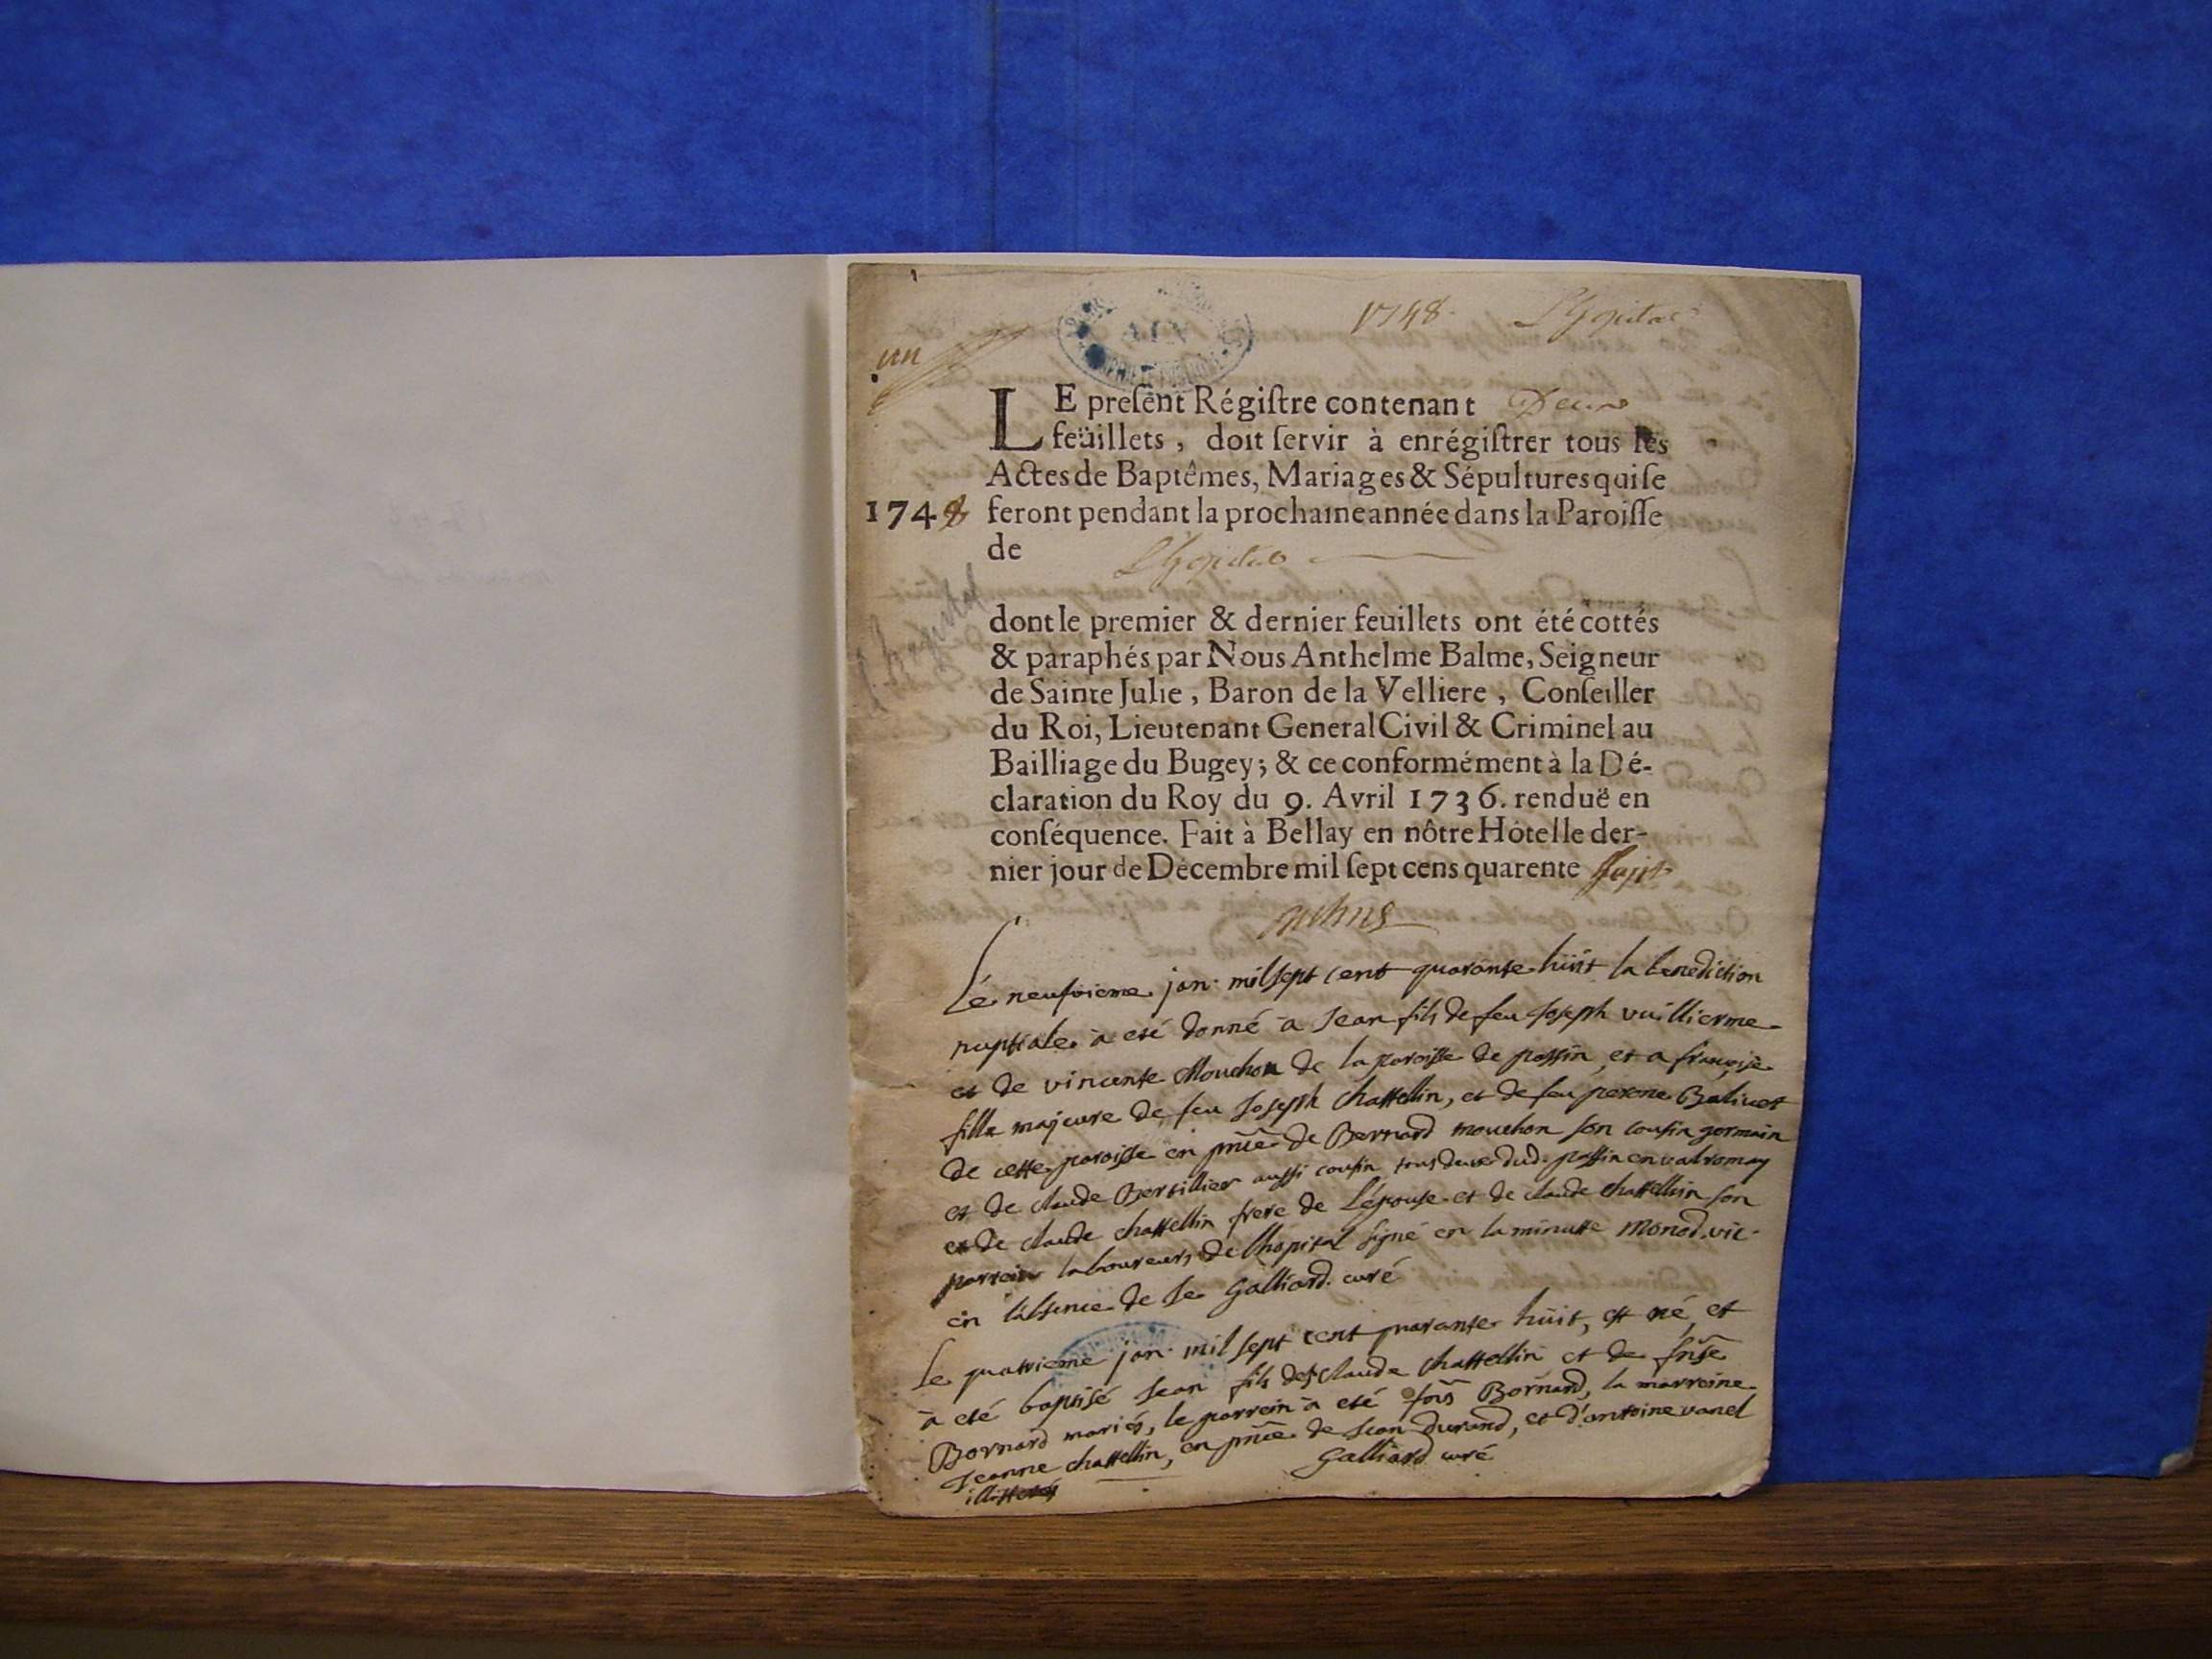 1748. L'hopital
un
LE preſent Régiſtre contenant Deux
feüillets, doit ſervir à enrégiſtrer tous les
Actes de Baptêmes, Mariages & Sépultures qui ſe
1748 feront pendant la prochaine année dans la Paroiſſe
de L'hopital
L'hopital
dont le premier & dernier feuillets ont été cottés
& paraphés par Nous Anthelme Balme, Seigneur
de Sainte Julie, Baron de la Velliere, Conſeiller
du Roi, Lieutenant General Civil & Criminel au
Bailliage du Bugey; & ce conformément à la Dé-
claration du Roy du 9. Avril 1736. renduë en
conſéquence. Fait à Bellay en nôtre Hôtel le der-
nier jour de Décembre mil ſept cens quarente ſept
Le neufvieme jan. mil sept cent quarante huit la benediction
nuptiale à eté donné à Jean fils de feu Joseph vuillierme
et de vincente Mouchon de la paroisse de passin, et a françoise
fille majeure de feu Joseph Chattellin, et de feu perone Balivet
de cette paroisse en pnce de Bernard mouchon son cousin germain
et de claude Bertillier aussi cousin tous deux dud. passin en valromay
et de claude chattellin frere de L'épouse et de claude chattellin son
parrein laboureurs de l'hopital signé en la minutte Monod. vic.
en l'absence de Se Galliard. curé
Le quatrieme jan. mil sept cent quarante huit, est né, et
à eté baptisé Jean fils de claude chattellin et de frse
Bornard mariés, le parrein à eté fois Bornard, la marreine
Jeanne chattellin, en pnce de Jean Durand, et d'antoine vanel
illitterés Galliard curé